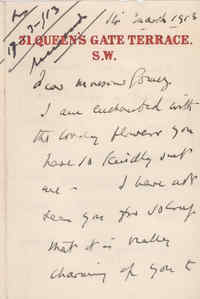 14 March 1913
19-3-13
31. QUEEN'S GATE TERRACE.
S.W.
Dear
I am enchanted with
the lovely flowers you
have so kindly sent
me – I have not
seen you for so long
that it is really
charming of you to